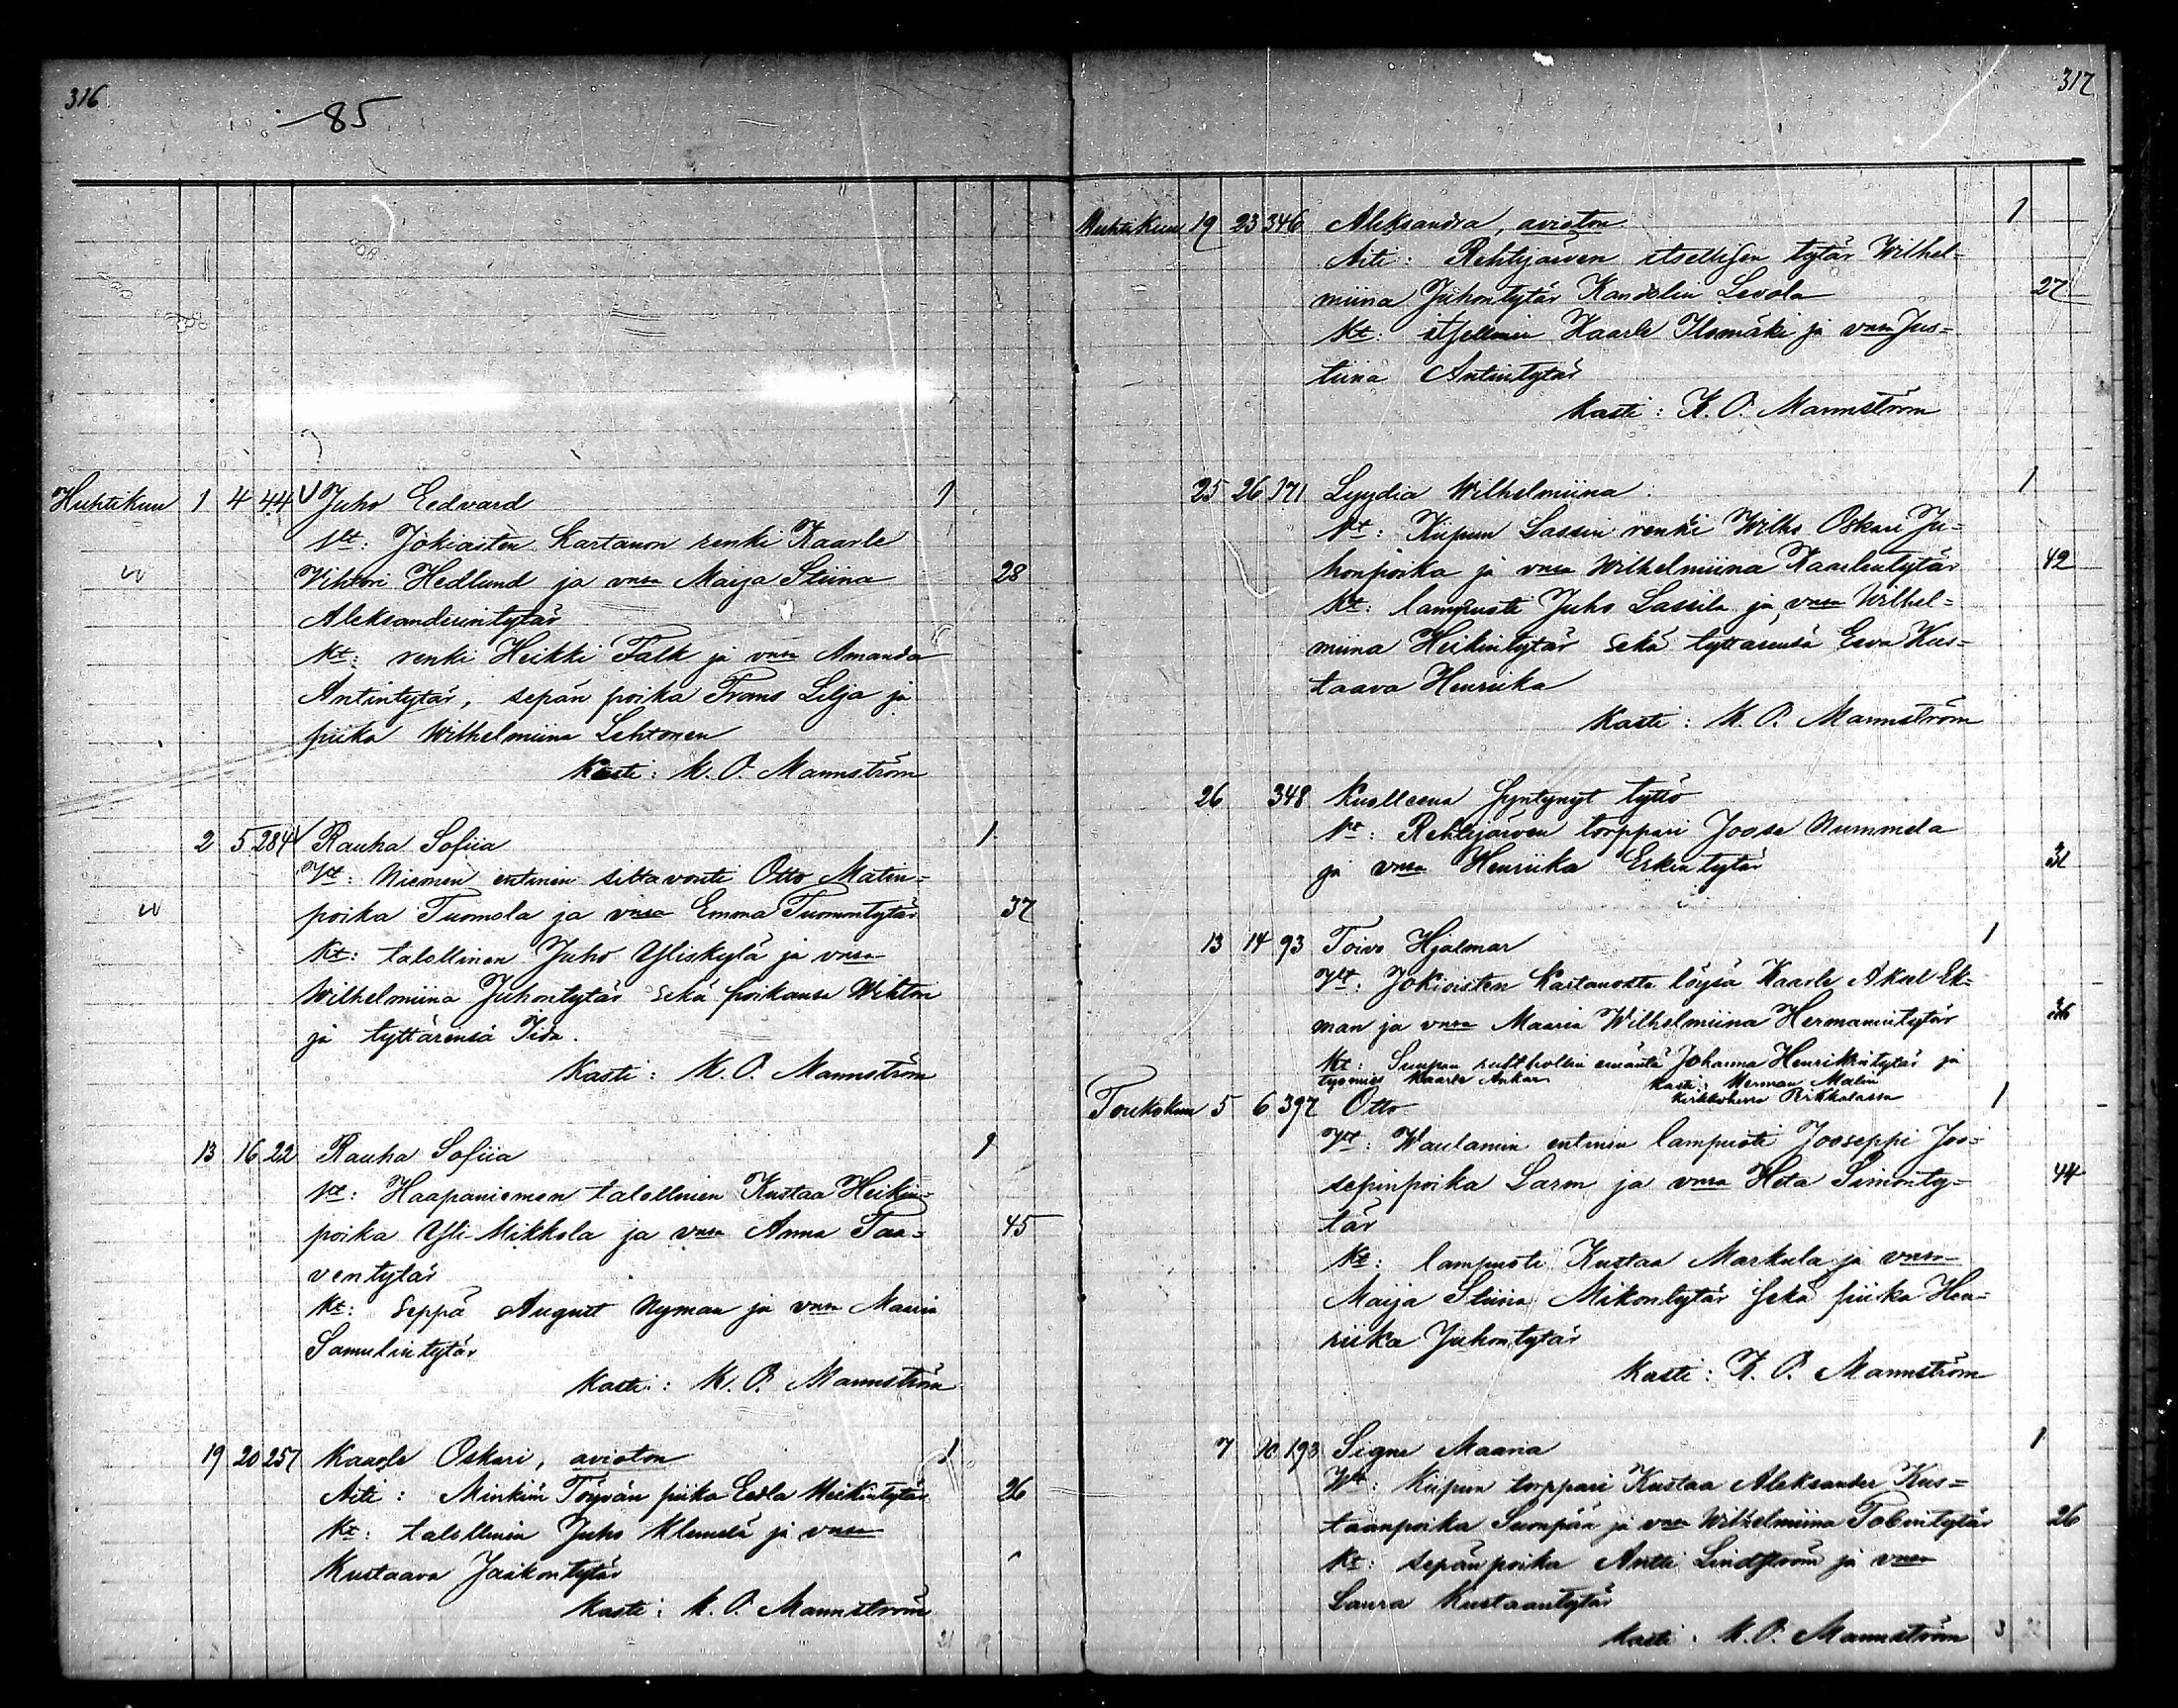 316
85
Huhtikuu 1 4 44 Juho Eedvard 1
Vt: Jokioisten Kartanon renki Kaarle
Vihtori Hedlund ja vmsa Maija Stiina 28
Aleksanderintytär
Kt: renki Heikki Falk ja vmsa Amanda
Antintytär, sepän poika Frans Lilja ja
piika Wilhelmiina Lehtonen
Kasti: K. O. Mannström
2 5 284 Rauha Sofiia 1
Vt: Niemen entinen siltavouti Otto Matin-
poika Tuomola ja vmsa Emma Tuomontytär 37
Kt: talollinen Juho Yliskylä ja vmsa
Wilhelmiina Juhontytär sekä poikansa Wihtori
ja tyttärensä Iida.
Kasti: K. O. Mannström
13 16 22 Rauha Sofiia 1
Vt: Haapaniemen talollinen Kustaa Heikin-
poika Yli-Mikkola ja vmsa Anna Taa- 45
ventytär
Kt: Seppä August Nyman ja vmsa Maria
Samulintytär
Kasti: K. O. Mannström
19 20 257 Kaarle Oskari, avioton 1
Äiti: Minkiön Töyvän piika Eedla Heikintytär 26
Kt: talollinen Juho Klemelä ja vmsa
Kustaava Jaakontytär
Kasti: K. O. Mannström
21 19
317
Huhtikuu 19 23 346 Aleksandra, avioton 1
Äiti: Rehtijärven itsellisen tytär Wilhel-
miina Juhontytär Kandelin Levola 27
Kt: itsellinen Kaarle Ilomäki ja vmsa Jus-
tiina Antintytär
Kasti: K. O. Mannström
25 26 171 Lyydia Wilhelmiina 1
Vt: Kiipun Lassin renki Wilho Oskari Ju-
honpoika ja vmsa Wilhelmiina Kaarlentytär 42
Kt: lampuoti Juho Lassila ja vmsa Wilhel-
miina Heikintytär sekä tyttärensä Eeva Kus-
taava Henriika
Kasti: K. O. Mannström
26 348 Kuolleena syntynyt tyttö
Vt: Rehtijärven torppari Joose Nummela
ja vmsa Henriika Erkintytär 31
13 14 93 Toivo Hjalmar 1
Vt: Jokioisten Kartanosta löysä Kaarle Aksel Ek-
man ja vmsa Maaria Wilhelmiina Hermanintytär 36
Kt: Suupan rusthollin emäntä Johanna Henrikintytär ja
työmies Kaarle Ankar Kasti: Herman Malin
kirkkoherra Pirkkalassa
Toukokuu 5 6 397 Otto 1
Vt: Waulamin entinen lampuoti Jooseppi Joo-
sepinpoika Larm ja vmsa Heta Simonty- 44
tär
Kt: lampuoti Kustaa Markula ja vmsa
Maija Stiina Mikontytär sekä piika Hen-
riika Juhontytär
Kasti: K. O. Mannström
7 10 193 Signe Maaria 1
Vt: Kiipun torppari Kustaa Aleksander Kus-
taanpoika Suonpää ja vmsa Wilhelmiina Tobintytär 26
Kt: sepänpoika Antti Lindström ja vmsa
Laura Kustaantytär
Kasti: K. O. Mannström 3